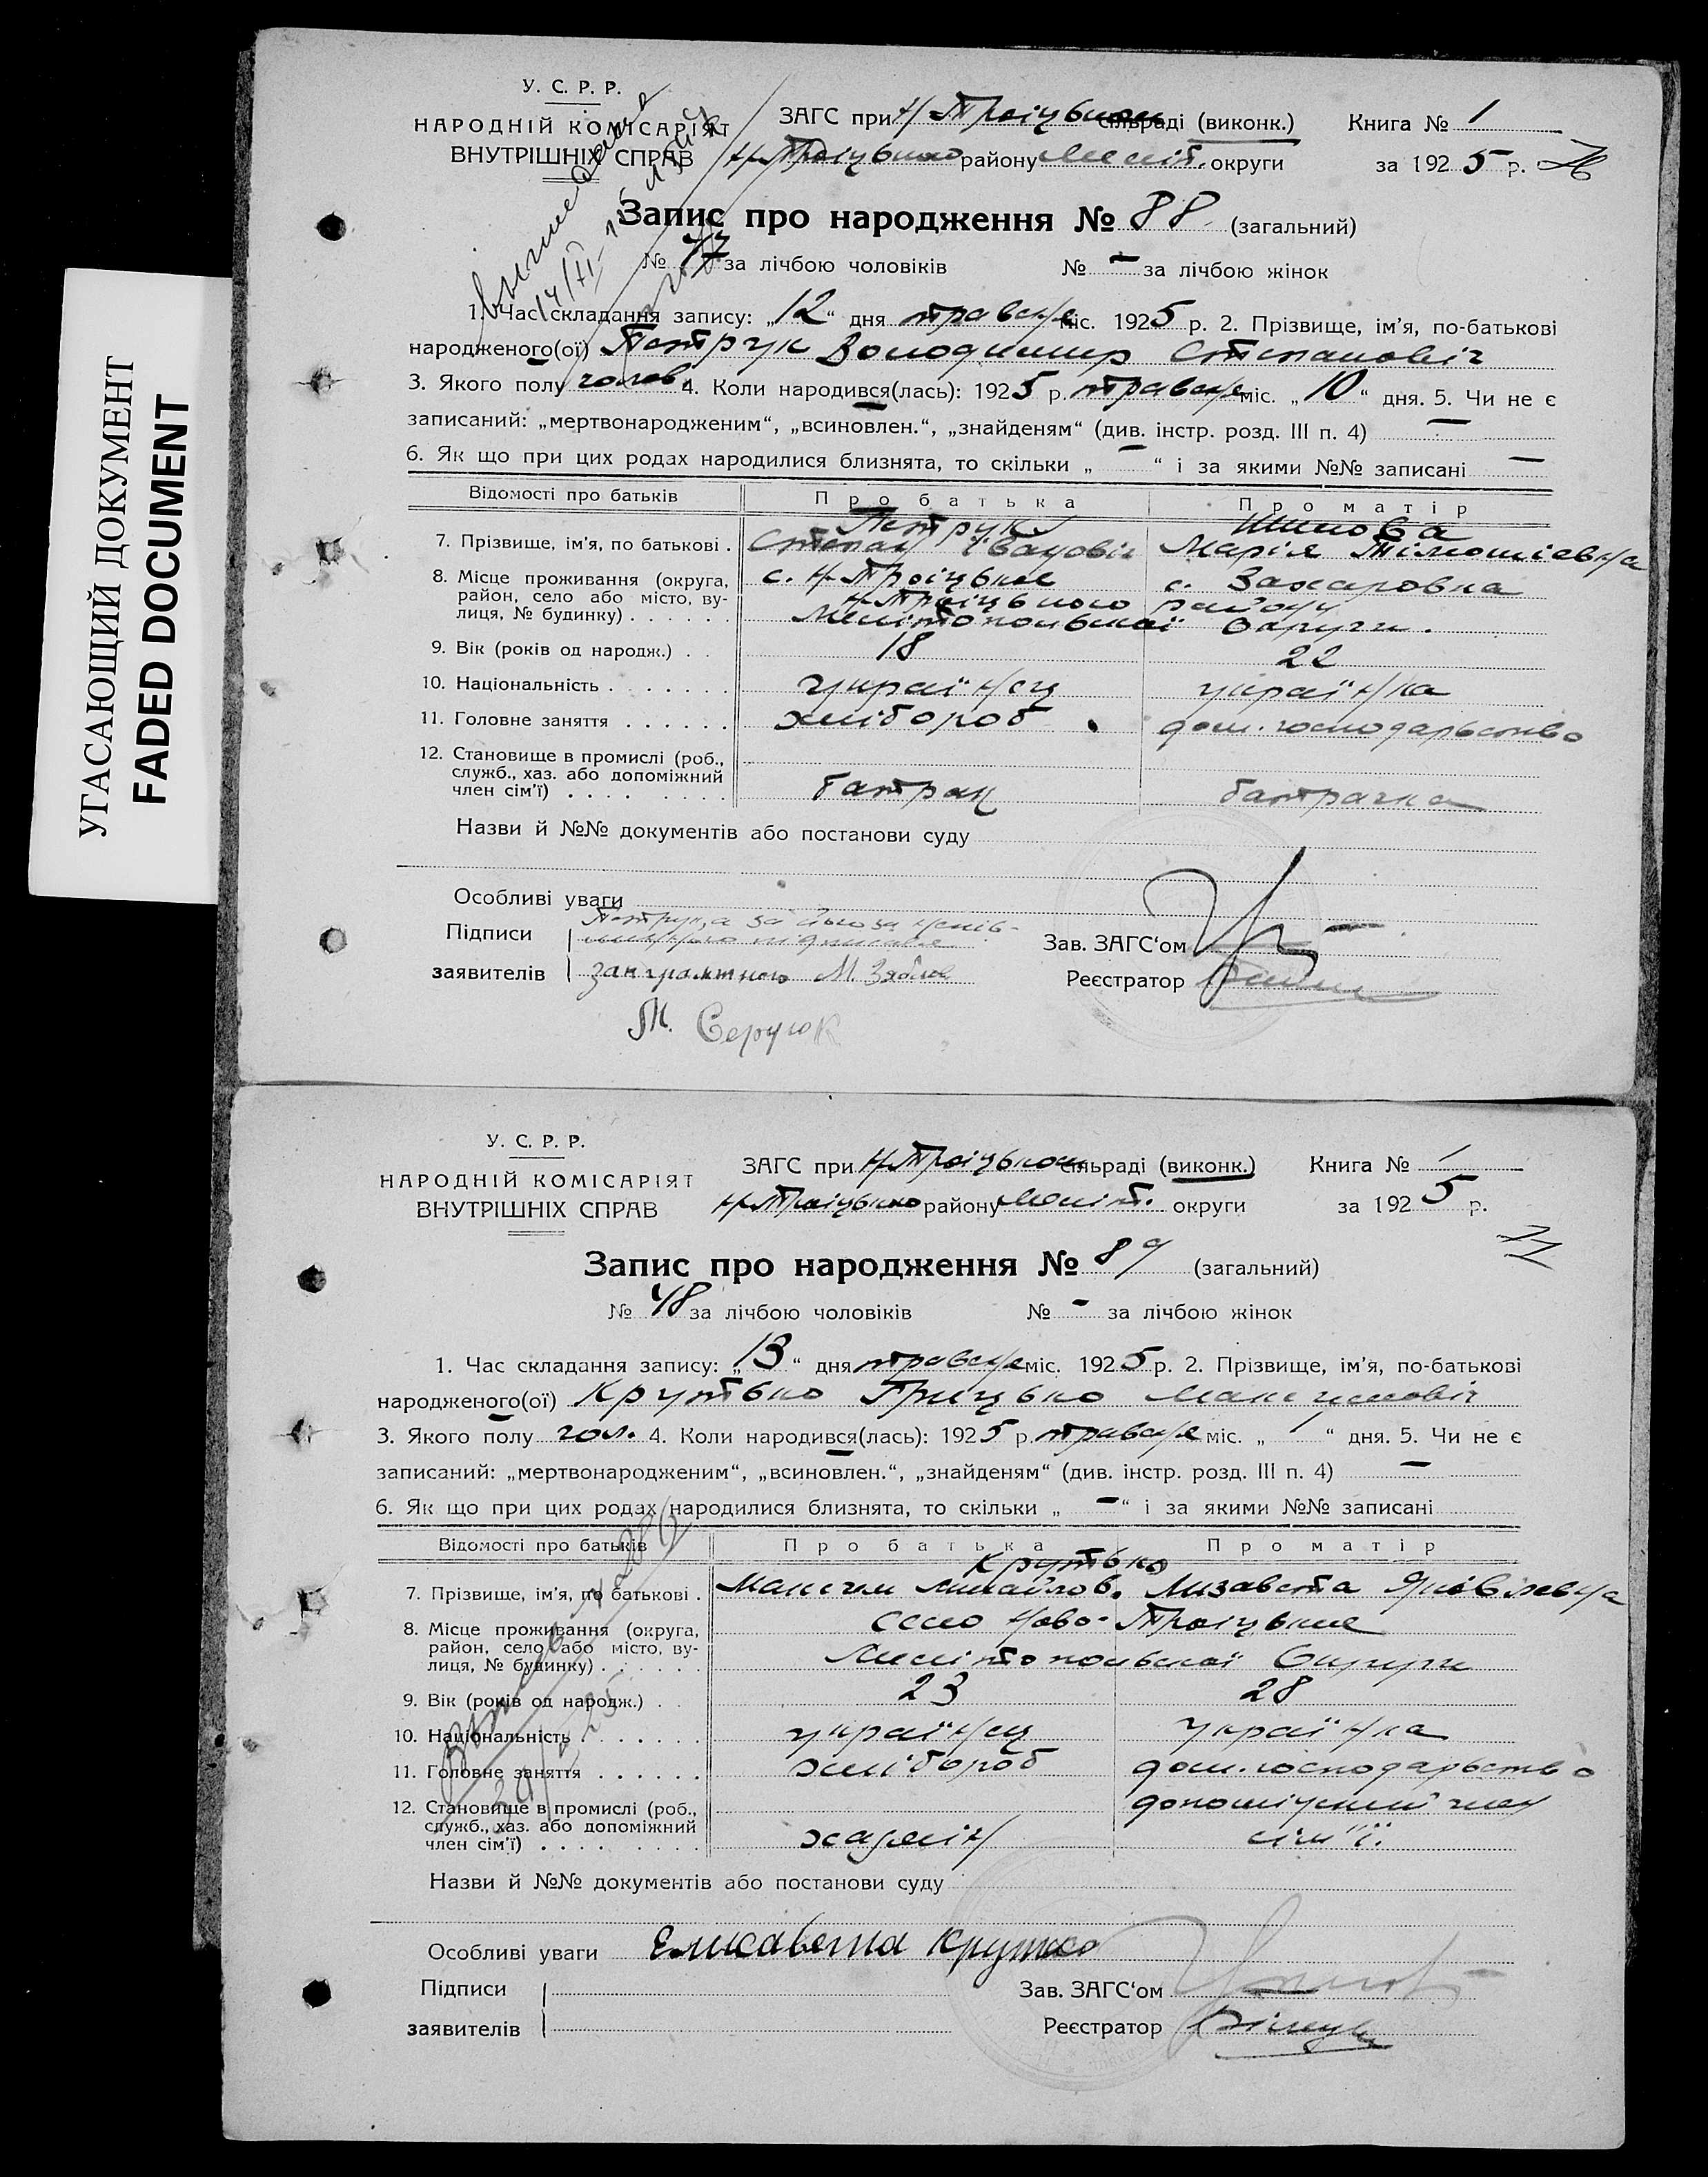 УГАСАЮЩИЙ ДОКУМЕНТ
FADED DOCUMENT
У. С. Р. Р.
НАРОДНІЙ КОМІСАРІЯТ
ВНУТРІШНІХ СПРАВ
ЗАГС при Н Троіцьком сільраді (виконк.) Книга № 1
Н-Троіцького району Меліт. округи за 1925 р. 76
Запис про народження № 88 (загальний)
№ 47 за лічбою чоловіків № — за лічбою жінок
1. Час складання запису: „12“ дня травеня міс. 1925 р. 2. Прізвище, ім’я, по-батькові
народженого(ої) Петрук Володимир Степановіч
3. Якого полу чолов. 4. Коли народився(лась): 1925 р. травеня міс. „10“ дня. 5. Чи не є
записаний: „мертвонародженим“, „всиновлен.“, „знайденям“ (див. інстр. розд. III п. 4) —
6. Як що при цих родах народилися близнята, то скільки „ — “ і за якими №№ записані —
Відомості про батьків Про батька Про матір
Петрук Шилова
7. Прізвище, ім’я, по батькові . Степан Івановіч Марія Тімошіевна
8. Місце проживання (округа, с. Н-Троіцьке с. Захаровка
район, село або місто, ву- Н-Троіцького району
лиця, № будинку) . . . . . . Мелітопольської Округи.
9. Вік (років од народж.) . . 18 22
10. Національність . . . . . . . українец українка
11. Головне заняття . . . . . . хлібороб дом. господарьство
12. Становище в промислі (роб.,
служб., хаз. або допоміжний
член сім’ї) . . . . . . . . батрак батрачка
Назви й №№ документів або постанови суду
Особливі уваги
Підписи Петрук, а за його
заявителів М.
Зав. ЗАГС‘ом
Реєстратор
М. Сердюк
У. С. Р. Р.
НАРОДНІЙ КОМІСАРІЯТ
ВНУТРІШНІХ СПРАВ
ЗАГС при Н Троіцьком сільраді (виконк.) Книга № 1
Н-Троіцького району Меліт. округи за 1925 р.
77
Запис про народження № 89 (загальний)
№ 48 за лічбою чоловіків № — за лічбою жінок
1. Час складання запису: „13“ дня травеня міс. 1925 р. 2. Прізвище, ім’я, по-батькові
народженого(ої) Крутько Грицько Максимовіч
3. Якого полу чол. 4. Коли народився(лась): 1925 р. травеня міс. „1“ дня. 5. Чи не є
записаний: „мертвонародженим“, „всиновлен.“, „знайденям“ (див. інстр. розд. III п. 4) —
6. Як що при цих родах народилися близнята, то скільки „ — “ і за якими №№ записані
Відомості про батьків Про батька Про матір
Крутько
7. Прізвище, ім’я, по батькові . Максим Михайлов. Лизавета Яківлевна
8. Місце проживання (округа, село Ново-Троіцьке
район, село або місто, ву-
лиця, № будинку) . . . . . . Мелітопольської Округи
9. Вік (років од народж.) . . 23 28
10. Національність . . . . . . . українец українка
11. Головне заняття . . . . . . хлібороб дом. господарьство
12. Становище в промислі (роб., допоміжний член
служб., хаз. або допоміжний
член сім’ї) . . . . . . . . хазяін сім"ї.
Назви й №№ документів або постанови суду
Особливі уваги Елисавета Крутько
Підписи
заявителів
Зав. ЗАГС‘ом
Реєстратор